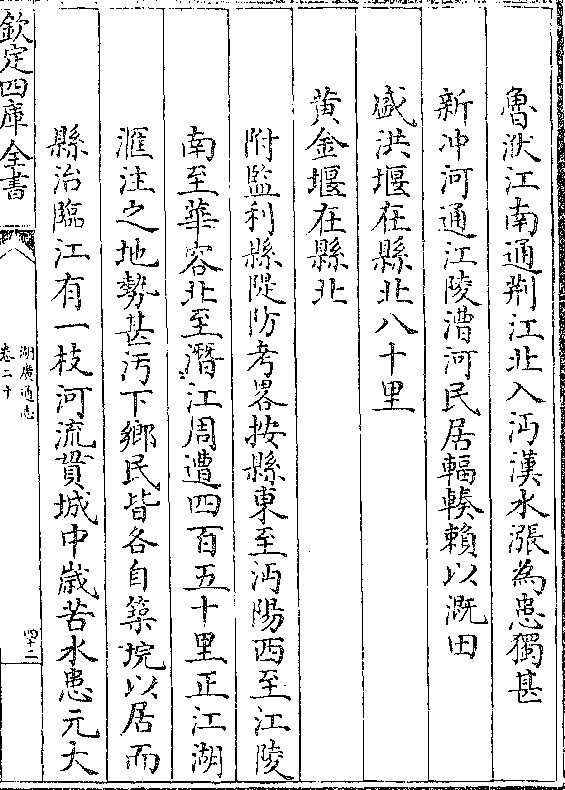 魯洑江南通荆江北入沔漢水漲為患獨甚
新冲河通江陵漕河民居輻輳賴以溉田
盛洪堰在縣北八十里
黄金堰在縣北
附監利縣隄防考畧按縣東至沔陽西至江陵
南至華容北至潛江周遭四百五十里正江湖
滙注之地勢甚汚下鄉民皆各自築垸以居而
縣治臨江有一枝河流貫城中歳苦水患元大
欽定四庫全書
湖廣通志
卷二十
四十二